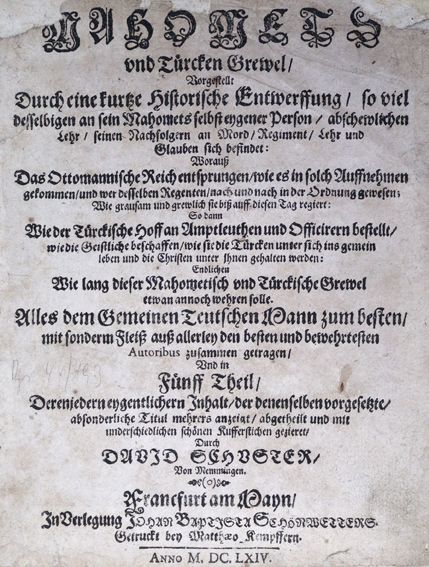 MAHOMETS
vnd Türcken Grewel/
Vorgestellt
Durch eine kurtze Historische Entwerffung/ so viel
desselbigen an sein Mahomets selbst eygener Person/ abschewlichen
Lehr/ seinen Nachfolgern an Mord/ Regiment/ Lehr und
Glauben sich befindet:
Worauß
Das Ottomannische Reich entsprungen/ wie es in solch Auffnehmen
gekommen/ und wer desselben Regenten/ nach und nach in der Ordnung gewesen;
Wie grausam und grewlich sie biß auff diesen Tag regiert:
So dann
Wie der Türckische Hoff an Amptleuthen und Officirern bestellt/
wie die Geistliche beschaffen/ wie sie die Türcken unter sich ins gemein
leben und die Christen unter Ihnen gehalten werden:
Endlichen
Wie lang dieser Mahometisch vnd Türckische Grewel
etwan annoch wehren solle.
Alles dem Gemeinen Teutschen Mann zum besten/
mit sonderm Fleiß auß allerley den besten und bewehrtesten
Autoribus zusammen getragen/
Und in
Fünff Theil/
Deren jedern eygentlichern Inhalt/ der denenselben vorgesetzte/
absonderliche Titul mehrers anzeigt/ abgetheilt und mit
underschiedlichen schönen Kufferstichen gezieret/
Durch
DAVID SCHVSTER/
Von Memmingen.
(o)
Francfurt am Mayn/
In Verlegung JOHAN BAPTISTA SCHÖNWETTERS.
Getruckt bey Matthæo Kempffern.
ANNO M. DC. LXIV.